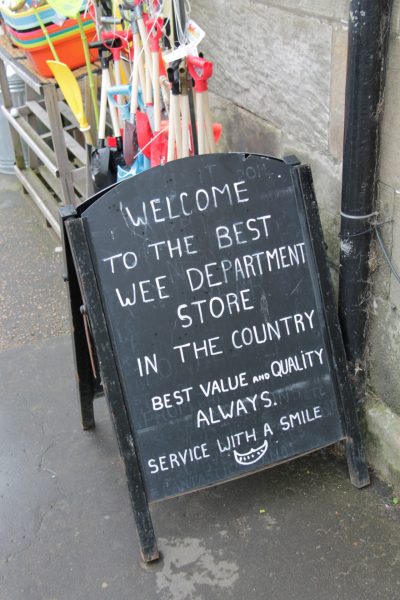 WELCOME
TO THE BEST
WEE DEPARTMENT
STORE
IN THE COUNTRY
BEST VALUE AND QUALITY
ALWAYS.
SERVICE WITH A SMILE